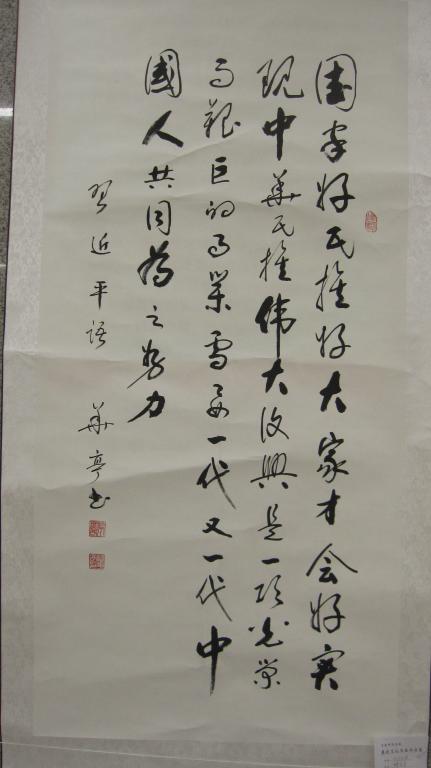 國家好民族好大家才会好实
现中華民族伟大復興是一项光荣
而艰巨的事業需要一代又一代中
國人共同為之努力
习近平語 華亭书